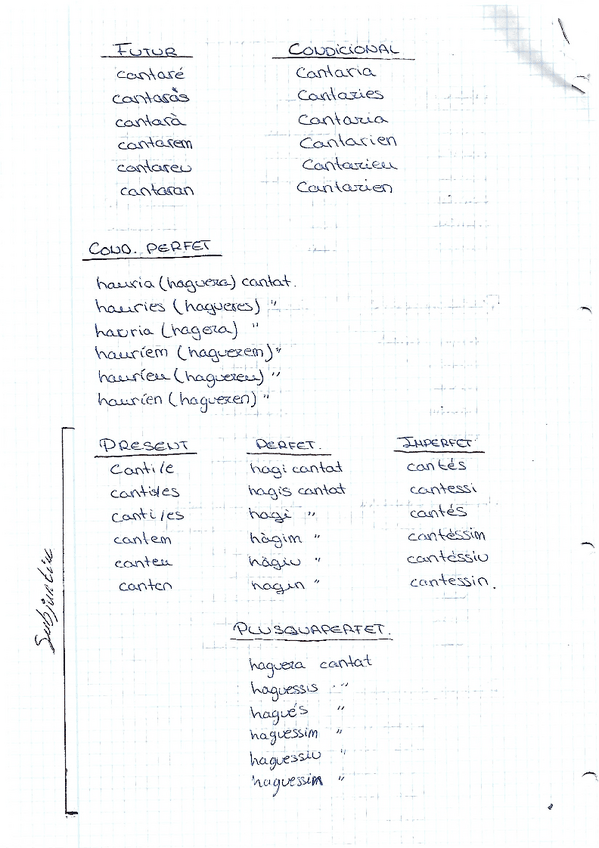 FUTUR CONDICIONAL
cantaré Cantaria
cantaràs Cantaries
cantarà Cantaria
cantarem Cantarien
cantareu Cantarieu
cantaran Cantarien
COND. PERFET
hauria (haguera) cantat.
hauries (hagueres) "
hauria (hagera) "
hauríem (haguerem) "
hauríeu (haguereu) "
haurien (hagueren) "
Subjuntiu
PRESENT PERFET. IMPERFET
Canti/e hagi cantat cantés
cantis/es hagis cantat cantessi
canti/es hagi " cantés
cantem hàgim " cantéssim
canteu hàgiu " cantéssiu
canten hagin " cantessin.
PLUSQUAPERFET.
haguera cantat
haguessis "
hagués "
haguessim "
haguessiu "
haguessim "